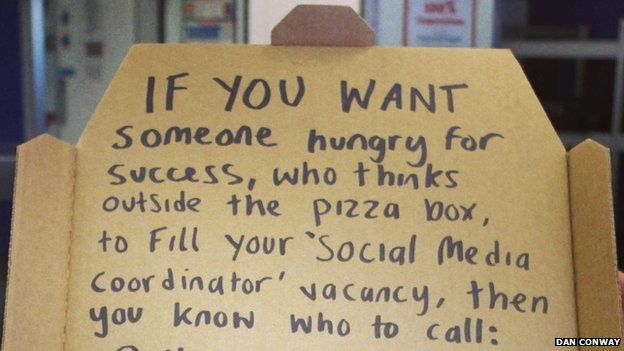 IF YOU WANT
someone hungry for
success, who thinks
outside the pizza box,
to fill your 'Social Media
coordinator' vacancy, then
you know who to call:
DAN CONWAY